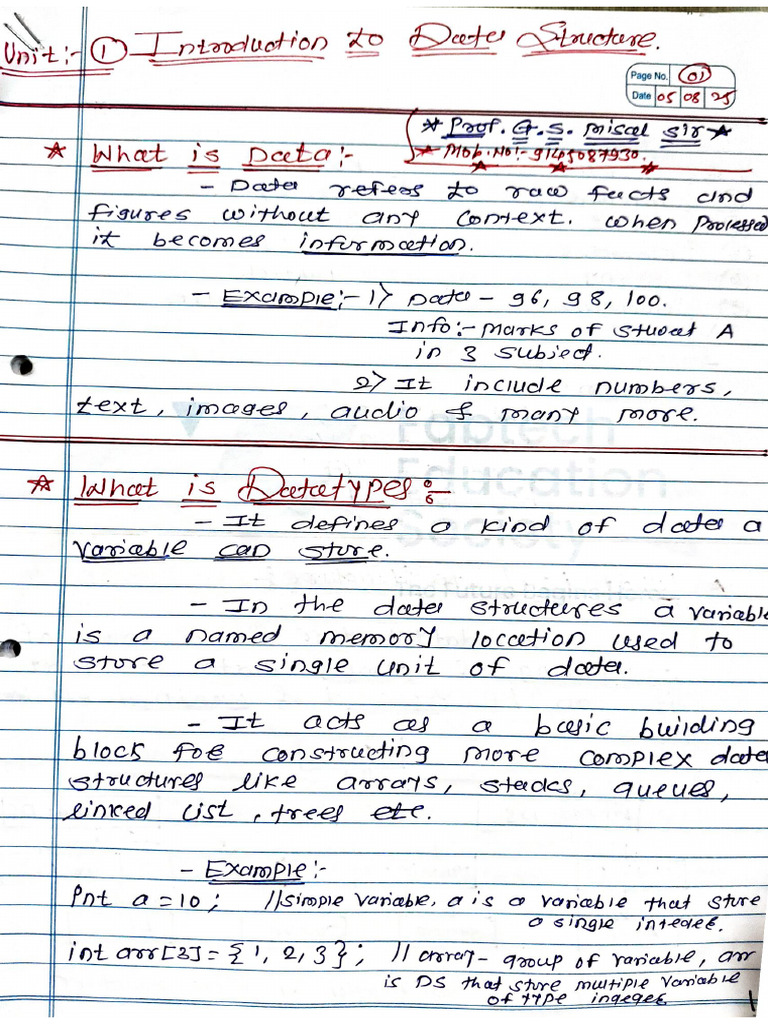 Unit:- ① Introduction to Data Structure.
Page No. 01
Date 05 08 25
* Prof. G. S. Misal Sir *
* Mob. No:- 9145087930.
* What is Data:-
- Data refers to raw facts and
figures without any context. when Processed
it becomes information.
- Example:- 1> Data - 96, 98, 100.
Info:- Marks of student A
in 3 subject.
2> It include numbers,
text, images, audio & many more.
Fabtech
Education
Society
* What is Datatypes:-
- It defines a kind of data a
variable can store.
The Future Begins Here
- In the data structures a variable
is a named memory location used to
store a single unit of data.
- It acts as a basic building
block for constructing more complex data
structures like arrays, stacks, queues,
linked list, trees etc.
- Example:-
int a = 10; //simple variable, a is a variable that store
a single integer.
int arr[3] = {1, 2, 3}; // array - group of variable, arr
is DS that store multiple variable
of type ingeger
1